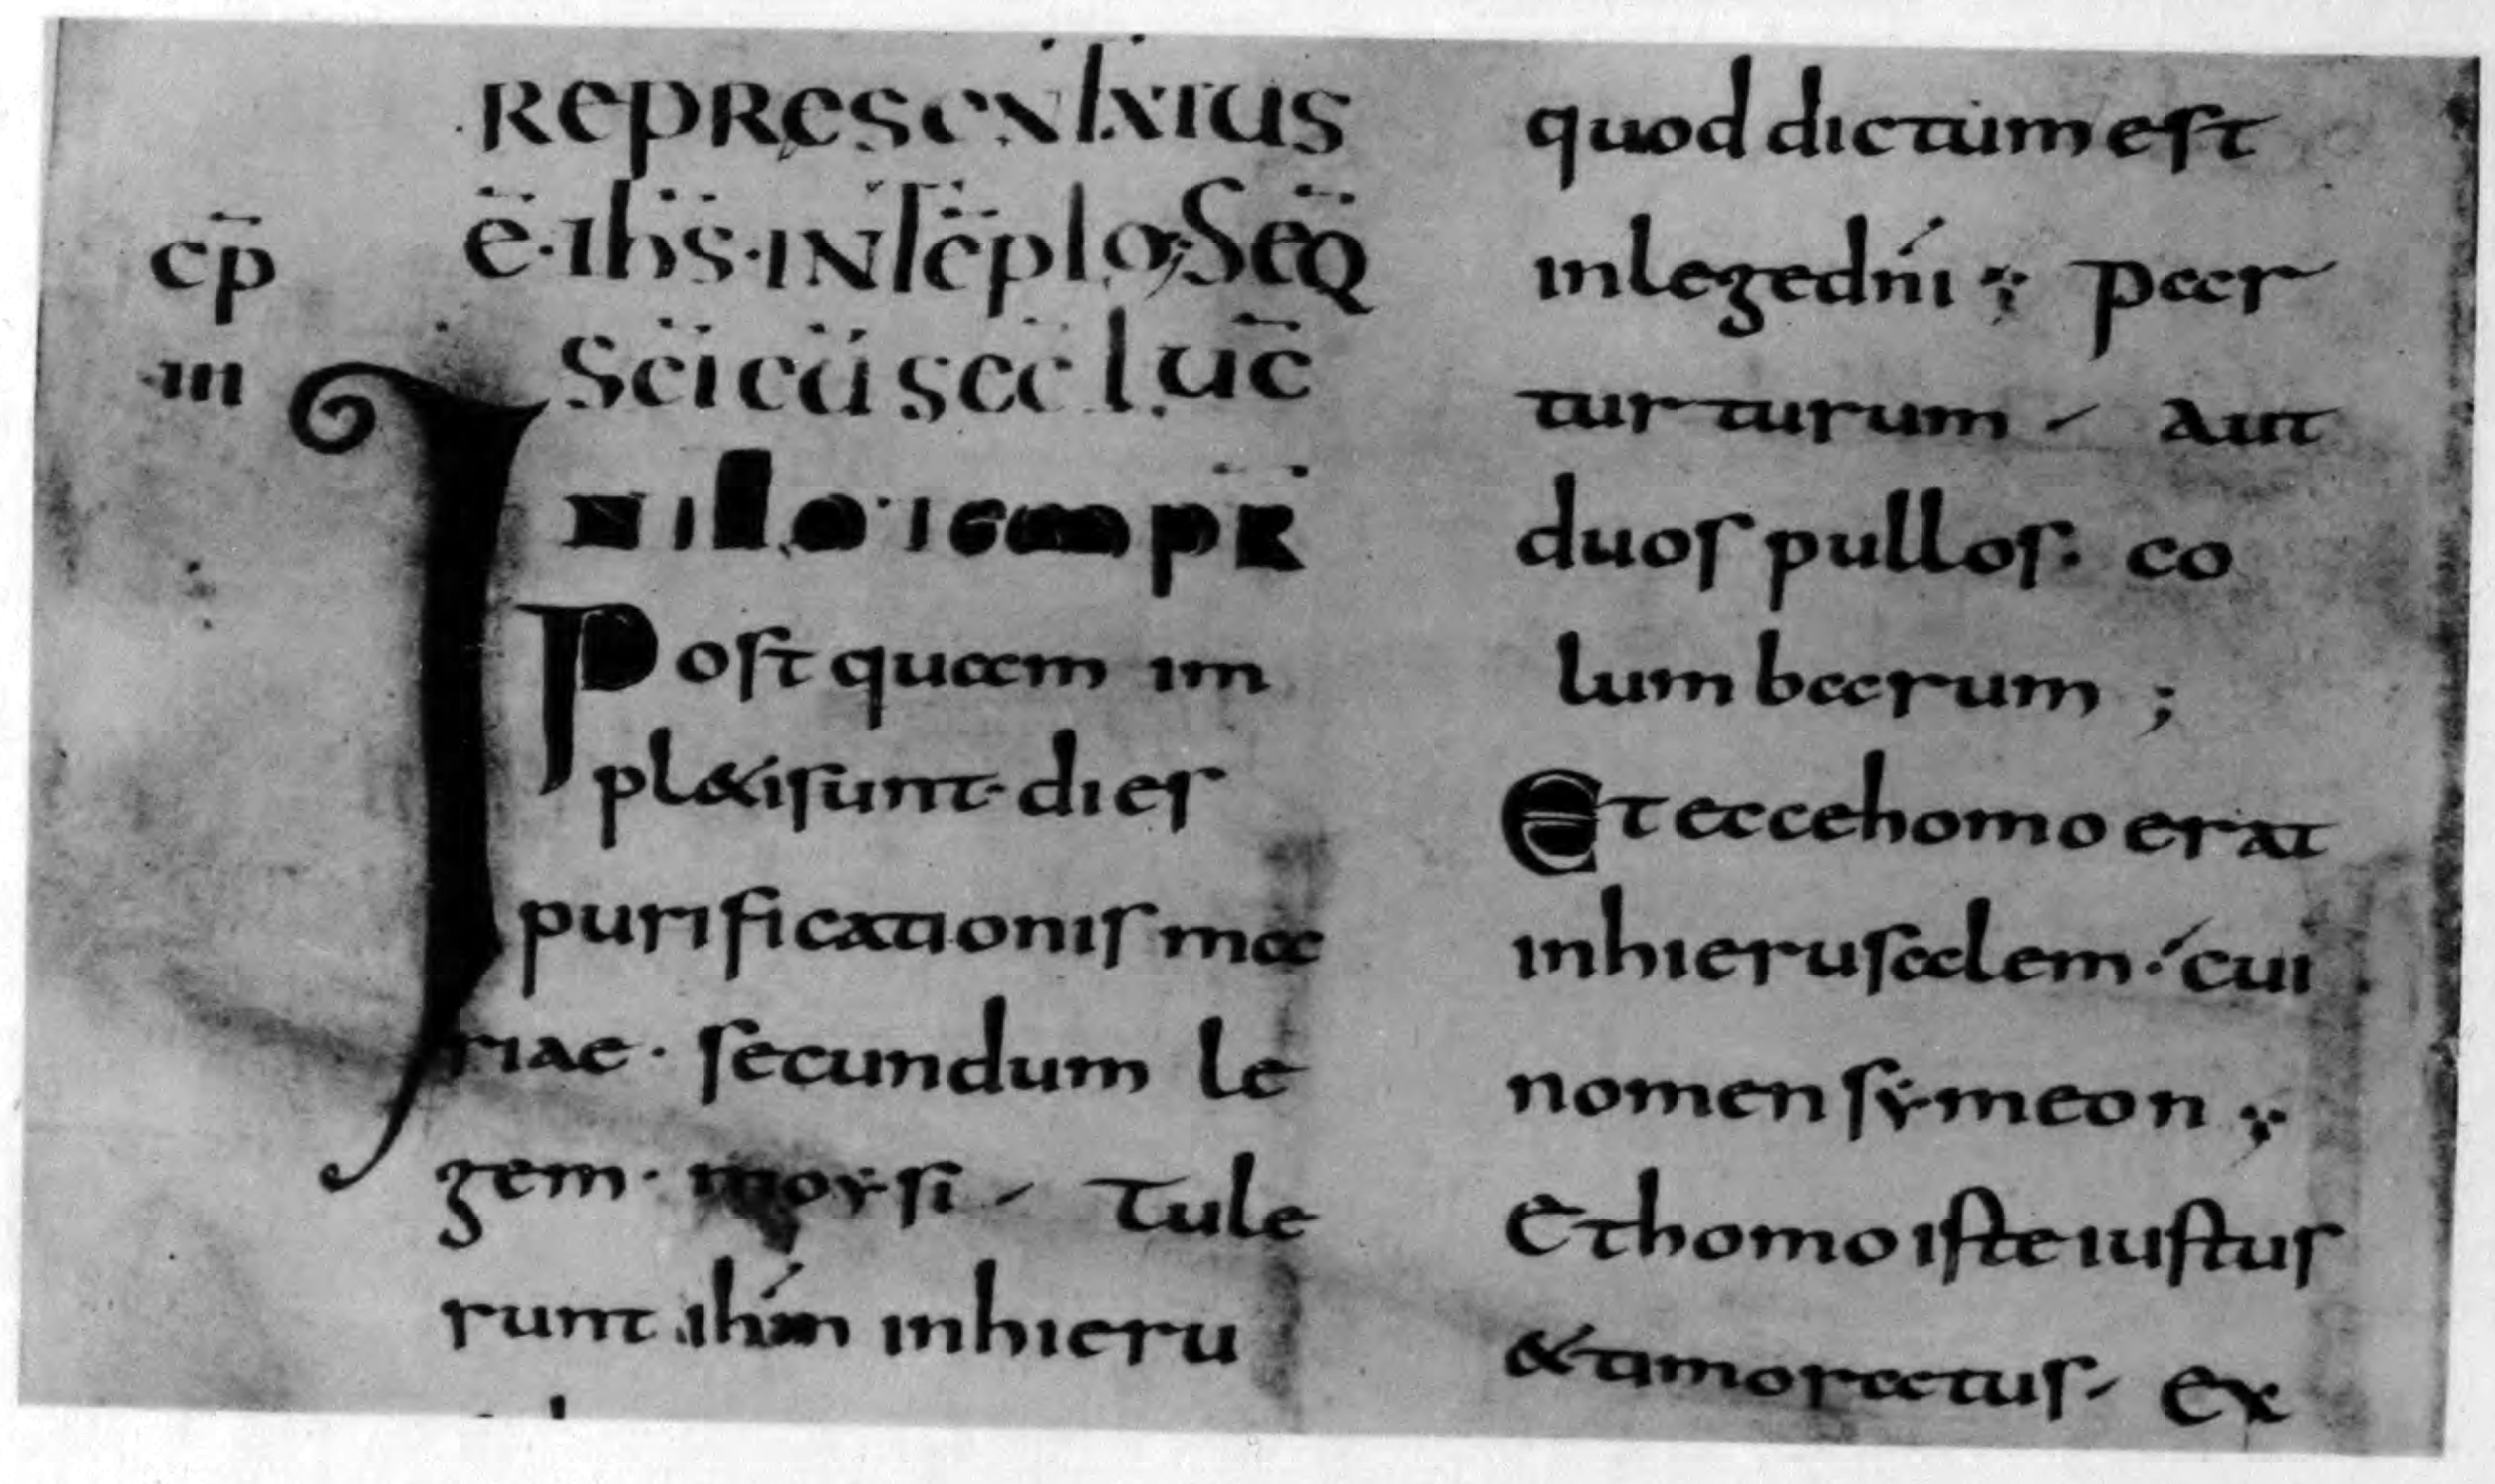 REPRESENTATUS
ē·ihs̄·IN TēPLO; SEQ̄
cp̄
SCĪ EŪ SCC̄ LUC̄
·III
IN ILLO·TEMPR̄
Postquam im
pl&i sunt· dies
purificationis ma
riae· secundum le
gem· moysi / Tule
runt ihm̄ in hieru
quod dictum est
in lege dnī ; par
turturum / aut
duos pullos· co
lumbarum ;
Et ecce homo erat
in hierusalem· cui
nomen symeon ;
Et homo iste iustus
& timoratus / Ex